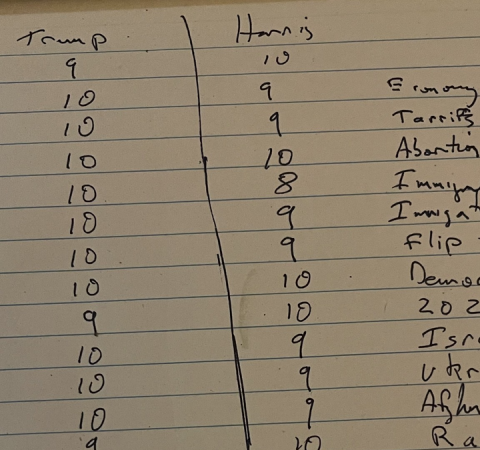 Trump Harris
9 10
10 9 Economy
10 9 Tarrifs
10 10 Abortion
10 8 Immigr
10 9 Immgat
10 9 Flip
10 10 Democ
9 10 202
10 9 Isra
10 9 Ukr
10 9 Afghn
9 10 Ra